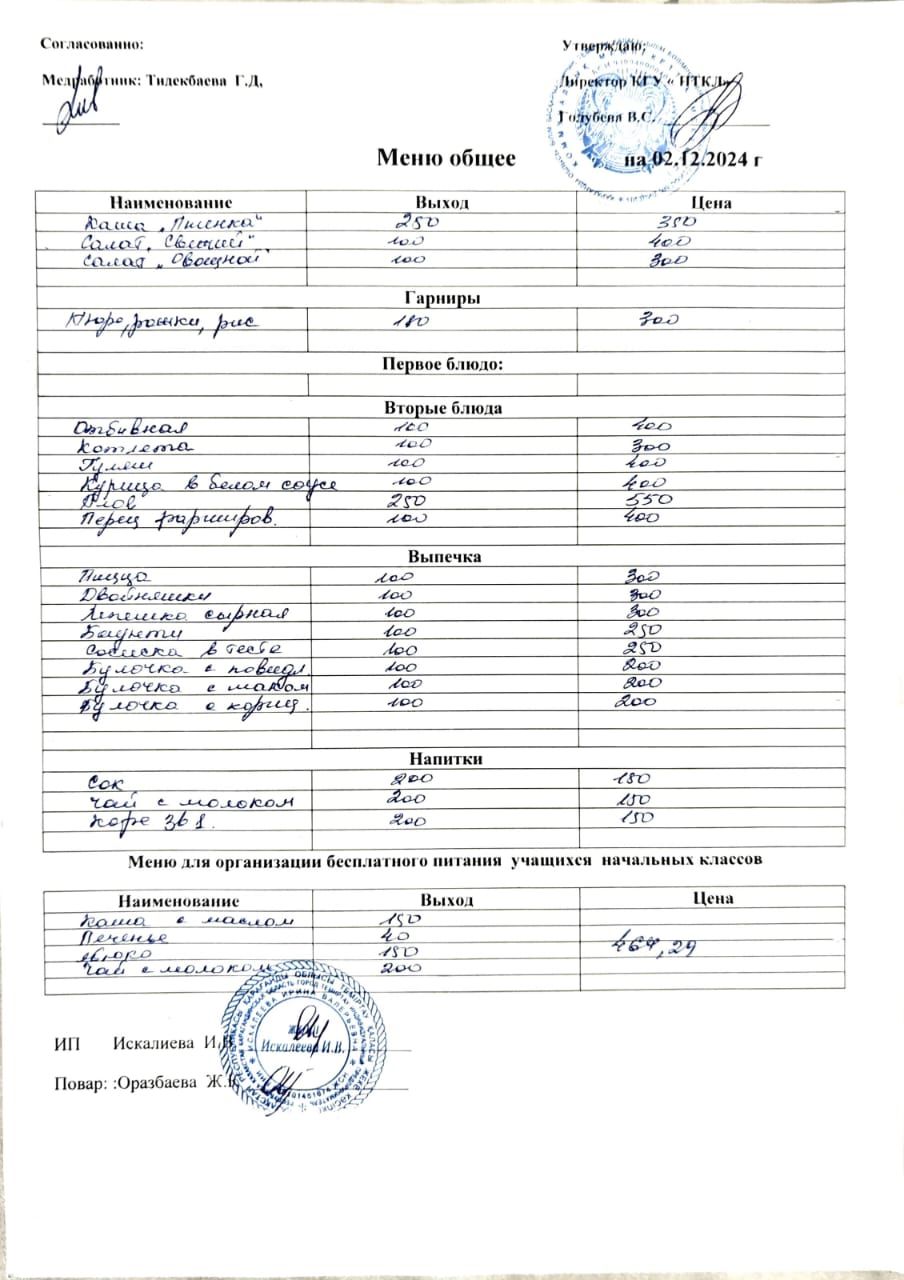 Согласованно:
Утверждаю;
Медработник: Тилекбаева Г.Д,
Директор КГУ « ИТКЛ»
Голубева В.С.
Меню общее на 02.12.2024 г
Наименование Выход Цена
Каша „Пшенка“ 250 350
Салат „Свежий“ 100 400
Салат „Овощной“ 100 300
Гарниры
Пюре, рожки, рис 180 300
Первое блюдо:
Вторые блюда
Отбивная 100 400
Котлета 100 300
Гуляш 100 400
Курица в белом соусе 100 400
Плов 250 550
Перец фарширов. 100 400
Выпечка
Пицца 100 300
Двойняшки 100 300
Лепешка сырная 100 300
Баунти 100 250
Сосиска в тесте 100 250
Булочка с повидл. 100 200
Булочка с маком 100 200
Булочка с кориц. 100 200
Напитки
Сок 200 150
Чай с молоком 200 150
Кофе 3в1. 200 150
Меню для организации бесплатного питания учащихся начальных классов
Наименование Выход Цена
Каша с маслом 150
Печенье 40
150 464,29
Чай с молоком 200
ИП Искалиева И.В.
Искалеева И.В.
Повар: :Оразбаева Ж.